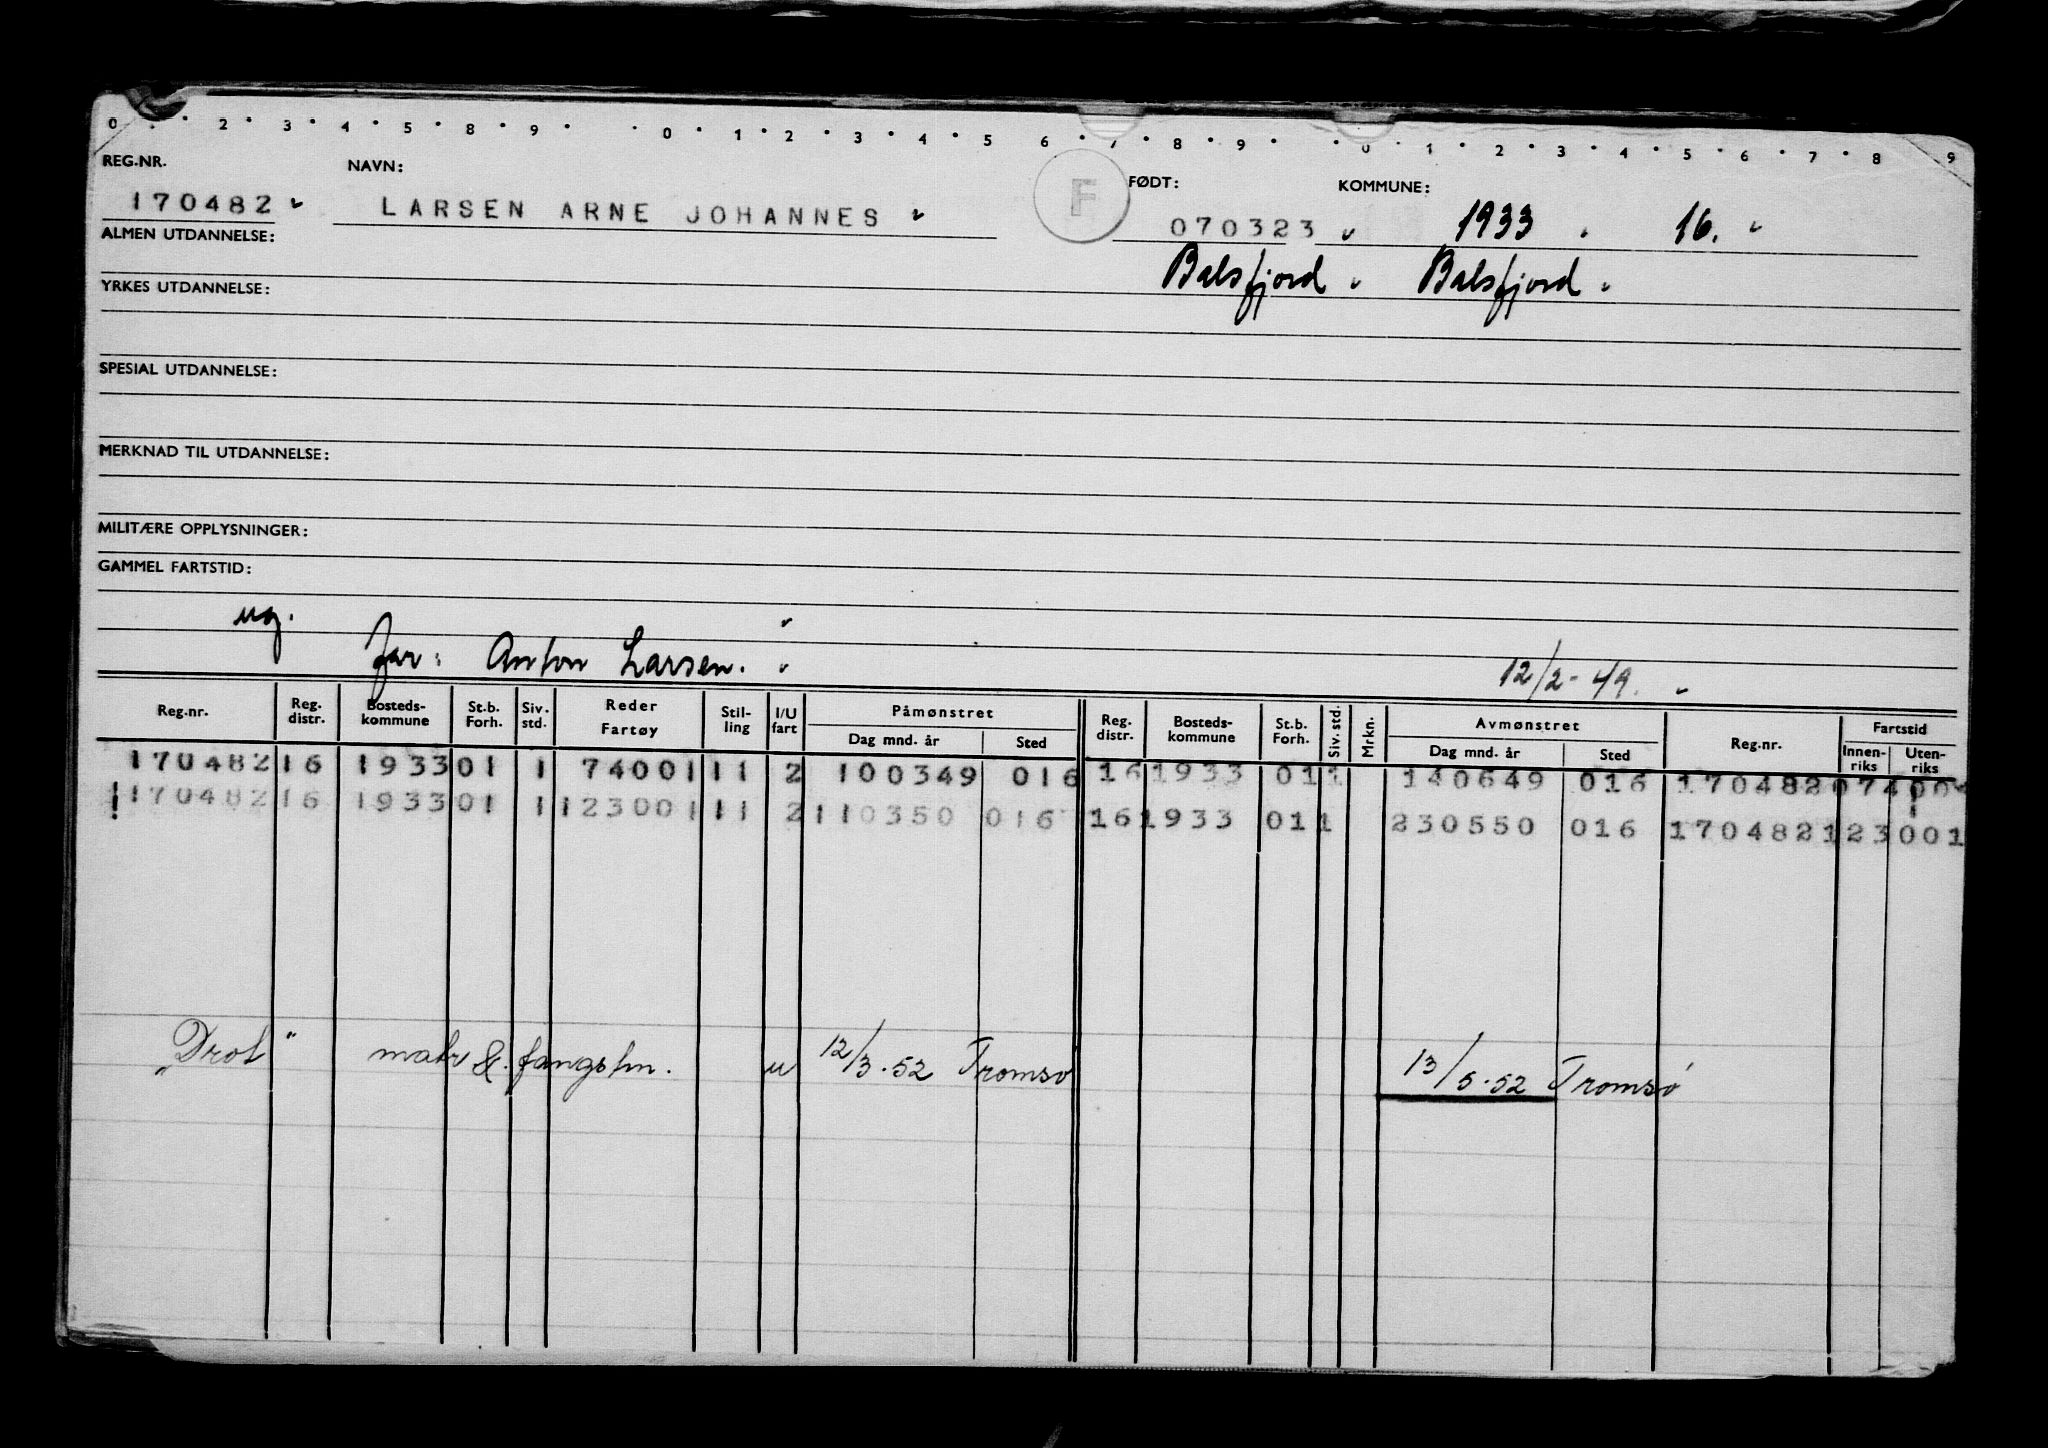 0 · · 2 · 3 · 4 · 5 · 8 · 9 · · 0 · 1 · 2 · 3 · 4 · 5 6 · 7 · 8 · 9 · · 0 · 1 · 2 · 3 · 4 · 5 · 6 · 7 · 8 9
REG.NR. NAVN: F FØDT: KOMMUNE:
170482 LARSEN ARNE JOHANNES 070323 1933 16.
ALMEN UTDANNELSE: Balsfjord Balsfjord
YRKES UTDANNELSE:
SPESIAL UTDANNELSE:
MERKNAD TIL UTDANNELSE:
MILITÆRE OPPLYSNINGER:
GAMMEL FARTSTID:
ug.
Far: Anton Larsen. 12/2-49.
Reg.nr. Reg. distr. Bosteds-kommune St.b. Forh. Siv. std. Reder Fartøy Stil-ling I/U fart Påmønstret Dag mnd. år Sted Reg. distr. Bosteds-kommune St.b. Forh. Siv. std. Mrkn. Avmønstret Dag mnd. år Sted Reg.nr. Fartstid Innen-riks Uten-riks
170482 16 1933 01 1 74001 11 2 100349 016 16 1933 01 1 140649 016 170482 074001
170482 16 1933 01 1 123001 11 2 110350 016 16 1933 01 1 230550 016 170482 123001
"Drot" matr & fangstm. u 12/3.52 Tromsø 13/5.52 Tromsø